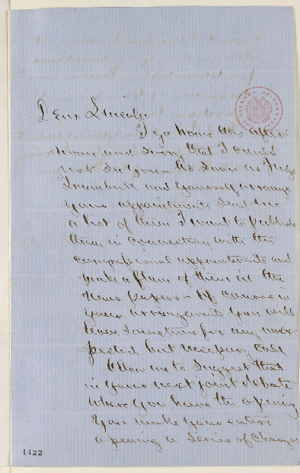 Dear Lincoln
I go home this after
noon and sorry that I could
not see you – As soon as Judge
Trumbull and yourself arrange
your appointments send me
a list of them I want to publish
them in connection with the
congressional appointments and
make a flam of them in the
News papers – Of course in
your arrangements you will
leave sometime for any unex
pected but necessary call
Allow me to suggest that
in your next joint debate
where you have the opening
You make your entire
opening a series of charges
1422